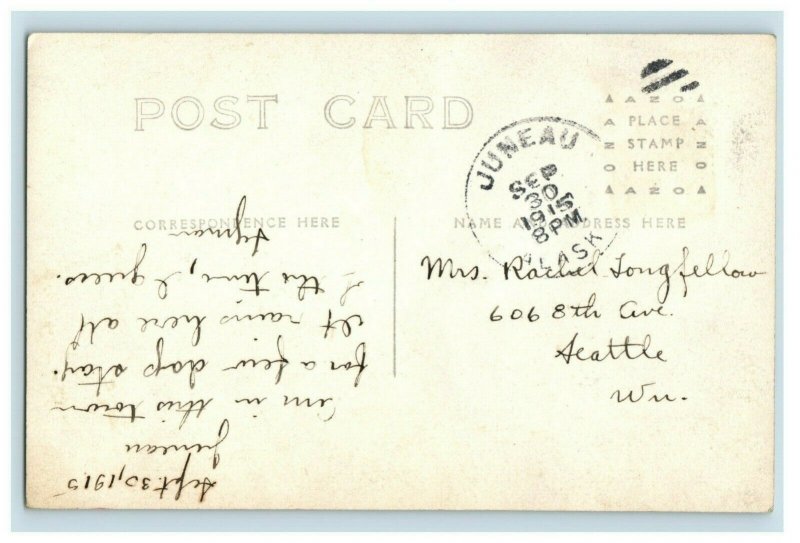 POST CARD
JUNEAU
SEP
30
1915
8 PM
ALASK
AZO
PLACE
STAMP
HERE
AZO
AZO
AZO
CORRESPONDENCE HERE
NAME AND ADDRESS HERE
Mrs. Rachel Longfellow
606 8th Ave.
Seattle
Wn.
Sept. 30, 1915
Juneau
Am in this town
for a few days stay.
It rains here all
the time, I guess.